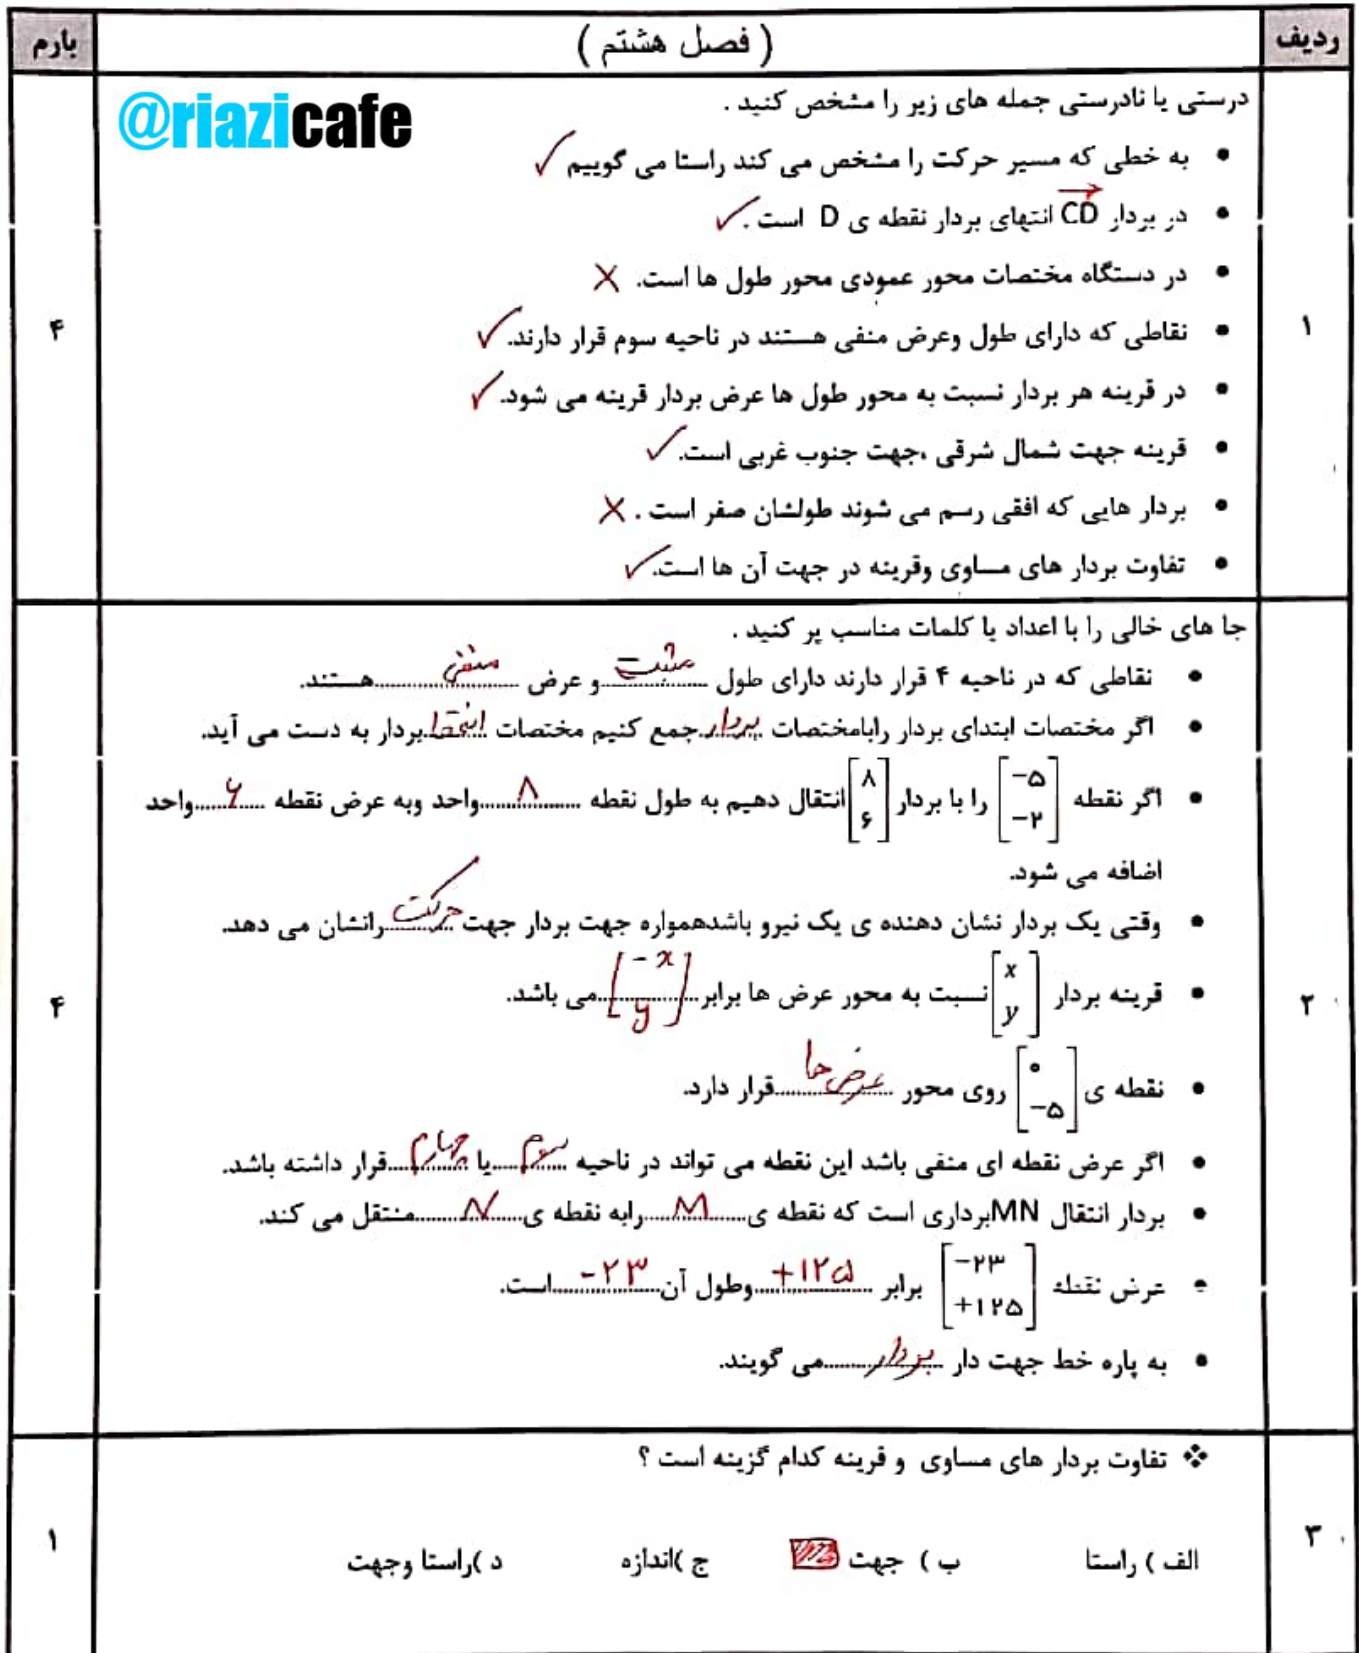 ردیف
( فصل هشتم )
بارم
@riazicafe
۱
۴
درستی یا نادرستی جمله های زیر را مشخص کنید .
• به خطی که مسیر حرکت را مشخص می کند راستا می گوییم ✓
• در بردار CD انتهای بردار نقطه ی D است . ✓
• در دستگاه مختصات محور عمودی محور طول ها است. ✗
• نقاطی که دارای طول وعرض منفی هستند در ناحیه سوم قرار دارند. ✓
• در قرینه هر بردار نسبت به محور طول ها عرض بردار قرینه می شود. ✓
• قرینه جهت شمال شرقی ،جهت جنوب غربی است. ✓
• بردار هایی که افقی رسم می شوند طولشان صفر است . ✗
• تفاوت بردار های مساوی وقرینه در جهت آن ها است. ✓
۲
۴
جا های خالی را با اعداد یا کلمات مناسب پر کنید .
• نقاطی که در ناحیه ۴ قرار دارند دارای طول مثبت و عرض منفی هستند.
• اگر مختصات ابتدای بردار رابامختصات بردار جمع کنیم مختصات انتها بردار به دست می آید.
• اگر نقطه [−۵ −۲] را با بردار [۸ ۶] انتقال دهیم به طول نقطه ۸ واحد وبه عرض نقطه ۶ واحد
اضافه می شود.
• وقتی یک بردار نشان دهنده ی یک نیرو باشدهمواره جهت بردار جهت حرکت رانشان می دهد.
• قرینه بردار [x y] نسبت به محور عرض ها برابر [-x y] می باشد.
• نقطه ی [۰ −۵] روی محور عرض ها قرار دارد.
• اگر عرض نقطه ای منفی باشد این نقطه می تواند در ناحیه سوم یا چهارم قرار داشته باشد.
• بردار انتقال MNبرداری است که نقطه ی M رابه نقطه ی N منتقل می کند.
• عرض نقطه [−۲۳ +۱۲۵] برابر +۱۲۵ وطول آن -۲۳ است.
• به پاره خط جهت دار بردار می گویند.
۳
۱
❖ تفاوت بردار های مساوی و قرینه کدام گزینه است ؟
الف ) راستا ب ) جهت ج )اندازه د )راستا وجهت